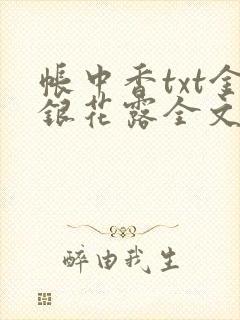 帳中香txt金
銀花露全文
醉由我生